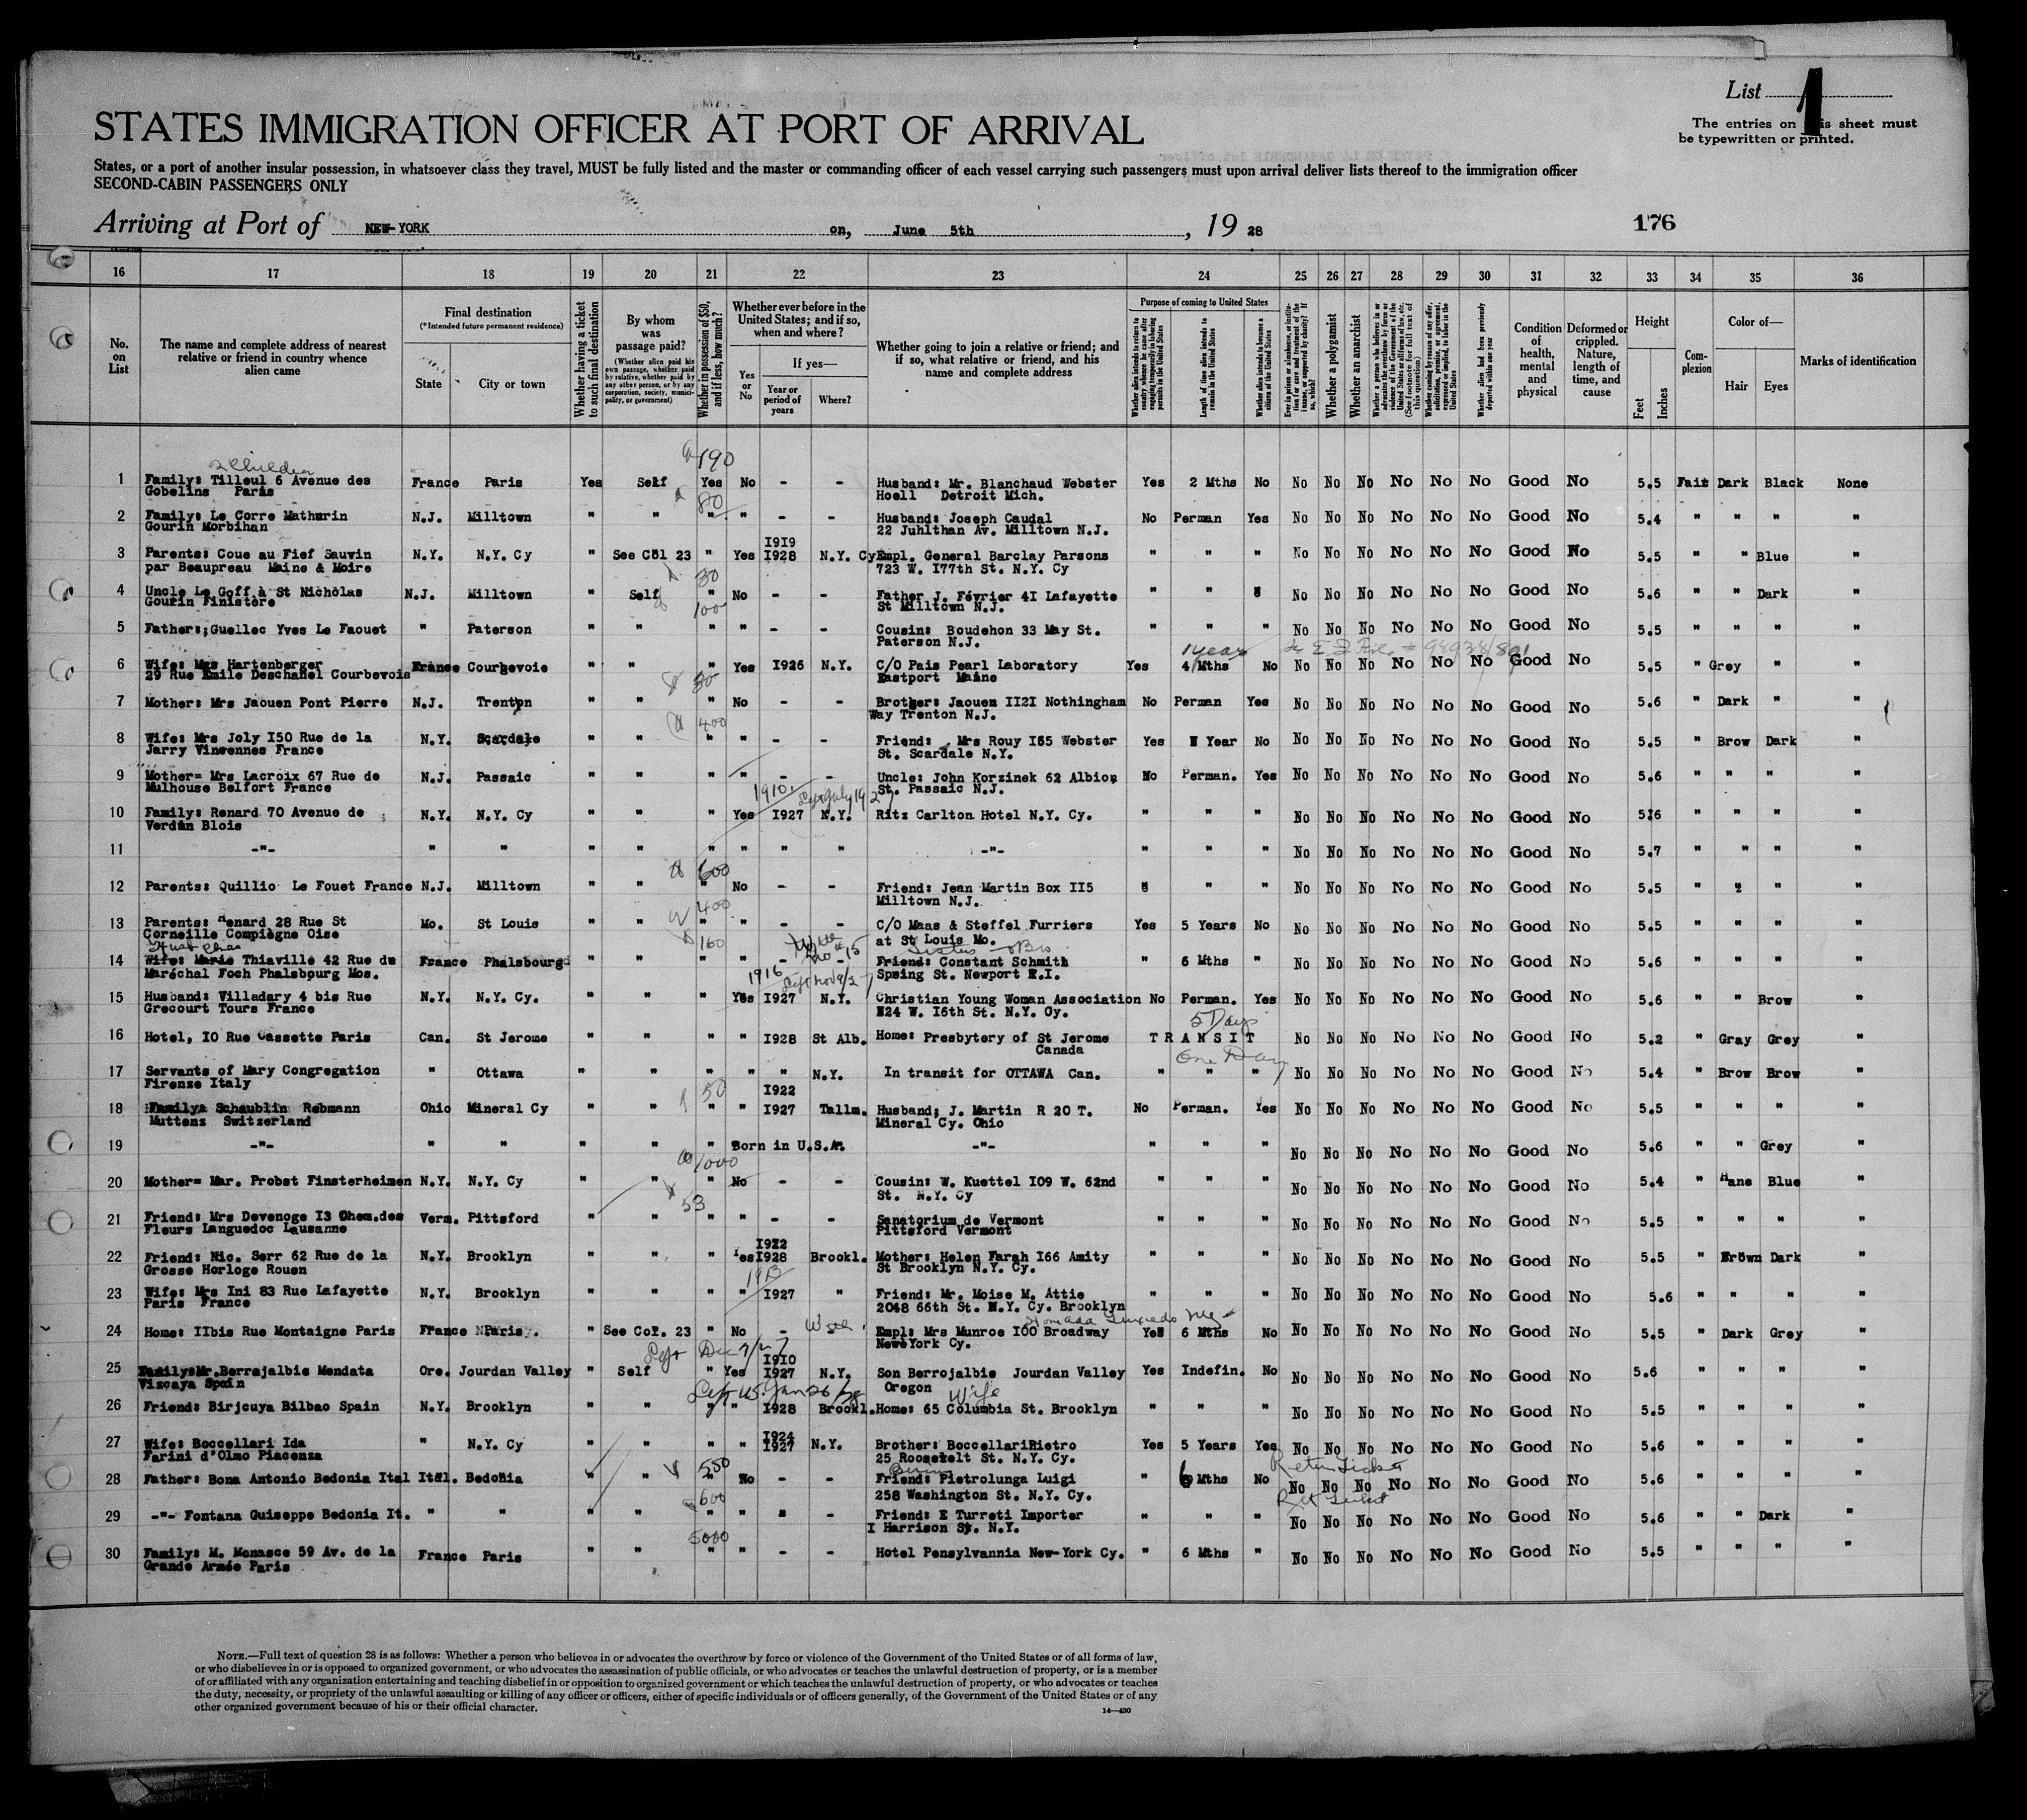 List 1
The entries on this sheet must
be typewritten or printed.
STATES IMMIGRATION OFFICER AT PORT OF ARRIVAL
States, or a port of another insular possession, in whatsoever class they travel, MUST be fully listed and the master or commanding officer of each vessel carrying such passengers must upon arrival deliver lists thereof to the immigration officer
SECOND-CABIN PASSENGERS ONLY
Arriving at Port of NEW-YORK on, June 5th, 19 28
176
16 17 18 19 20 21 22 23 24 25 26 27 28 29 30 31 32 33 34 35 36
No. on List
The name and complete address of nearest relative or friend in country whence alien came
Final destination
(*Intended future permanent residence)
State City or town
Whether having a ticket to such final destination
By whom was passage paid?
(Whether alien paid his own passage, whether paid by relative, whether paid by any other person, or by any corporation, society, municipality, or government)
Whether in possession of $50, and if less, how much?
Whether ever before in the United States; and if so, when and where?
Yes or No
If yes—
Year or period of years
Where?
Whether going to join a relative or friend; and if so, what relative or friend, and his name and complete address
Purpose of coming to United States
Length of time alien intends to remain in the United States
Whether alien intends to become a citizen of the United States
Whether a polygamist
Whether an anarchist
Condition of health, mental and physical
Deformed or crippled. Nature, length of time, and cause
Height
Feet Inches
Complexion
Color of—
Hair Eyes
Marks of identification
2 Children 190
1 Family: Tilleul 6 Avenue des France Paris Yes Self Yes No - - Husband: Mr. Blanchaud Webster Yes 2 Mths No No No No No No No Good No 5.5 Fair Dark Black None
Gobelins Paris Hoell Detroit Mich.
80
2 Family: Le Corre Mathurin N.J. Milltown " " " " - - Husband: Joseph Caudal No Perman Yes No No No No No No Good No 5.4 " " " "
Gourin Morbihan 22 Juhlthan Av. Milltown N.J.
I9I9
3 Parents: Coue au Fief Sauvin N.Y. N.Y. Cy " See Col 23 " Yes I928 N.Y. Cy Empl. General Barclay Parsons " " " No No No No No No Good No 5.5 " " Blue "
par Beaupreau Maine & Moire 723 W. I77th St. N.Y. Cy
30
4 Uncle Le Goff à St Nicholas N.J. Milltown " Self " No - - Father J. Février 4I Lafayette " " No No No No No No Good No 5.6 " " Dark "
Gourin Finistère St Milltown N.J.
100
5 Father:;Guellec Yves Le Faouet " Paterson " " " " - - Cousin: Boudehon 33 May St. " " " No No No No No No Good No 5.5 " " " "
Paterson N.J.
1 year
6 Wife: Mrs Hartenberger France Courbevoie " " " Yes I926 N.Y. C/O Pais Pearl Laboratory Yes 4 Mths No No No No No No No Good No 5.5 " Grey " "
29 Rue Emile Deschanel Courbevois Eastport Maine
30
7 Mother: Mrs Jaouen Pont Pierre N.J. Trenton " " " No - - Brother: Jaouen II2I Nothingham No Perman Yes No No No No No No Good No 5.6 " Dark " "
Way Trenton N.J.
400
8 Wife: Mrs Joly I50 Rue de la N.Y. Scardale " " " " - - Friend: Mrs Rouy I65 Webster Yes I Year No No No No No No No Good No 5.5 " Brow Dark "
Jarry Vincennes France St. Scardale N.Y.
9 Mother= Mrs Lacroix 67 Rue de N.J. Passaic " " " " - - Uncle: John Korzinek 62 Albion No Perman. Yes No No No No No No Good No 5.6 " " " "
Mulhouse Belfort France St. Passaic N.J.
1910. Left July 1927
10 Family: Renard 70 Avenue de N.Y. N.Y. Cy " " " Yes I927 N.Y. Ritz Carlton Hotel N.Y. Cy. " " " No No No No No No Good No 5.6 " " " "
Verdun Blois
11 -"- " " " " " " " " -"- " " " No No No No No No Good No 5.7 " " " "
600
12 Parents: Quillio Le Fouet France N.J. Milltown " " " No - - Friend: Jean Martin Box II5 " " No No No No No No Good No 5.5 " " " "
Milltown N.J.
400
13 Parents: Renard 28 Rue St Mo. St Louis " " " " - - C/O Maas & Steffel Furriers Yes 5 Years No No No No No No No Good No 5.5 " " " "
Corneille Compiègne Oise at St Louis Mo.
160 Wife No 15 Sister
14 Wife: Marie Thiaville 42 Rue du France Phalsbourg " " " " - - Friend: Constant Schmith " 6 Mths " No No No No No No Good No 5.6 " " " "
Maréchal Foch Phalsbourg Mos. Spring St. Newport R.I.
1916
15 Husband: Villadary 4 bis Rue N.Y. N.Y. Cy. " " " Yes I927 N.Y. Christian Young Woman Association No Perman. Yes No No No No No No Good No 5.6 " " Brow "
Grecourt Tours France W. I6th St. N.Y. Cy.
5 Days
16 Hotel, IO Rue Cassette Paris Can. St Jerome " " " " I928 St Alb. Home: Presbytery of St Jerome TRANSIT No No No No No No Good No 5.2 " Gray Grey "
Canada
One Day
17 Servants of Mary Congregation " Ottawa " " " " " N.Y. In transit for OTTAWA Can. " " " No No No No No No Good No 5.4 " Brow Brow "
Firenze Italy
50 I922
18 Family Schaublin Rebmann Ohio Mineral Cy " " " " I927 Tallm. Husband; J. Martin R 20 T. No Perman. Yes No No No No No No Good No 5.5 " " " "
Muttenz Switzerland Mineral Cy. Ohio
19 -"- " " " " " Born in U.S.A. -"- " " " No No No No No No Good No 5.6 " " Grey "
1000
20 Mother= Mar. Probst Finsterheimen N.Y. N.Y. Cy " " " No - - Cousin: W. Kuettel I09 W. 62nd " " " No No No No No No Good No 5.4 " Hane Blue "
St. N.Y. Cy
53
21 Friend: Mrs Devenoge I3 Chem.des Verm. Pittsford " " " " - - Sanatorium de Vermont " " " No No No No No No Good No 5.5 " " " "
Fleurs Languedoc Lausanne Pittsford Vermont
22 Friend: Nic. Serr 62 Rue de la N.Y. Brooklyn " " " Yes I928 Brookl. Mother: Helen Farah I66 Amity " " " No No No No No No Good No 5.5 " Brown Dark "
Grosse Horloge Rouen St Brooklyn N.Y. Cy.
1913
23 Wife: Mrs Ini 83 Rue Lafayette N.Y. Brooklyn " " " " I927 " Friend: Mr. Moise M. Attie " " " No No No No No No Good No 5.6 " " " "
Paris France 2048 66th St. N.Y. Cy. Brooklyn
24 Home: IIbis Rue Montaigne Paris France Paris " See Col. 23 " No - - Empl: Mrs Munroe I00 Broadway Yes 6 Mths No No No No No No No Good No 5.5 " Dark Grey "
New York Cy.
Left Dec 7/27 I9I0
25 Family:Mr.Berrajalbis Mendata Ore. Jourdan Valley " Self " Yes I927 N.Y. Son Berrojalbie Jourdan Valley Yes Indefin. No No No No No No No Good No 5.6 " " " "
Vizcaya Spain Oregon
Left US. Jan 26/28 Wife
26 Friend: Birjcuya Bilbao Spain N.Y. Brooklyn " " " " I928 Brookl. Home: 65 Columbia St. Brooklyn " " " No No No No No No Good No 5.5 " " " "
I924
27 Wife: Boccellari Ida " N.Y. Cy " " " " I927 N.Y. Brother: Boccellari Pietro Yes 5 Years Yes No No No No No No Good No 5.6 " " " "
Farini d'Olmo Piacenza 25 Roosevelt St. N.Y. Cy.
550 Return Ticket
28 Father: Bona Antonio Bedonia Ital Ital. Bedonia " " " No - - Friend: Pietrolunga Luigi " 6 Mths No No No No No No No Good No 5.6 " " " "
258 Washington St. N.Y. Cy.
600 Ret Ticket
29 -"- Fontana Guiseppe Bedonia It. " " " " " " " - Friend: E Turreti Importer " " " No No No No No No Good No 5.6 " " Dark "
I Harrison St. N.Y.
5000
30 Family: M. Monasce 59 Av. de la France Paris " " " " - - Hotel Pensylvannia New-York Cy. " 6 Mths " No No No No No No Good No 5.5 " " " "
Grande Armée Paris
NOTE.—Full text of question 28 is as follows: Whether a person who believes in or advocates the overthrow by force or violence of the Government of the United States or of all forms of law,
or who disbelieves in or is opposed to organized government, or who advocates the assassination of public officials, or who advocates or teaches the unlawful destruction of property, or is a member
of or affiliated with any organization entertaining and teaching disbelief in or opposition to organized government or which teaches the unlawful destruction of property, or who advocates or teaches
the duty, necessity, or propriety of the unlawful assaulting or killing of any officer or officers, either of specific individuals or of officers generally, of the Government of the United States or of any
other organized government because of his or their official character.
14—430